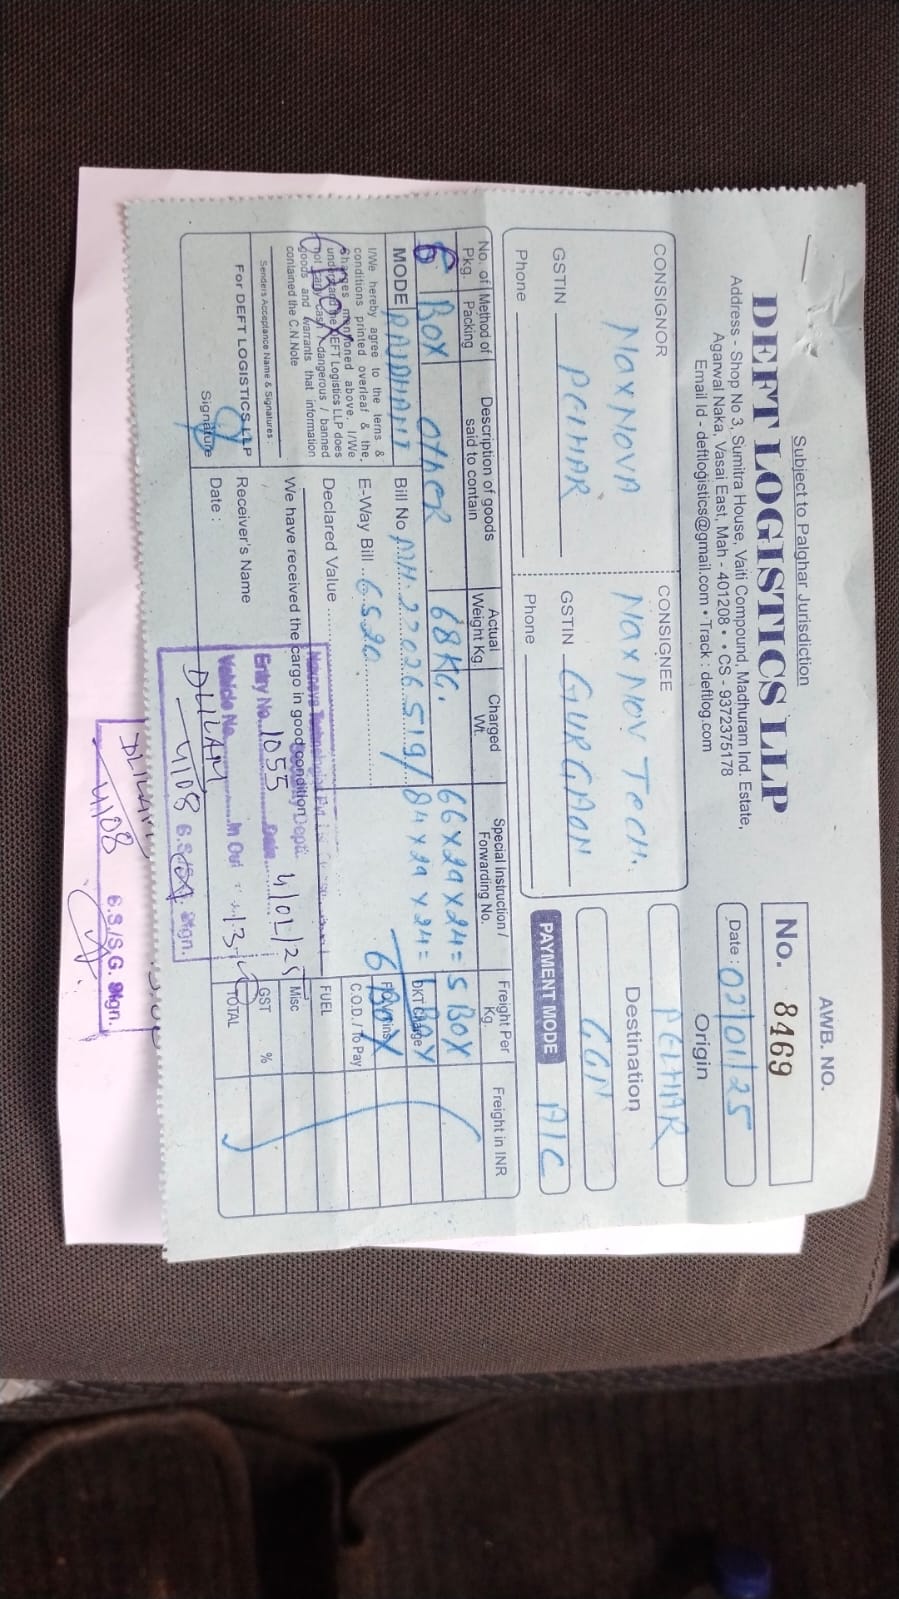 Subject to Palghar Jurisdiction
DEFT LOGISTICS LLP
Address - Shop No 3, Sumitra House, Vaiti Compound, Madhuram Ind. Estate,
Agarwal Naka, Vasai East, Mah - 401208 • CS - 9372375178
Email Id - deftlogistics@gmail.com • Track : deftlog.com
AWB. NO.
No. 8469
Date : 02/01/25
Origin
PELHAR
Destination
GGN
PAYMENT MODE A/C
CONSIGNOR
MAXNOVA
PELHAR
GSTIN
Phone
CONSIGNEE
MAXMOV TECH.
GURGAON
GSTIN
Phone
No. of Pkg. Method of Packing Description of goods said to contain Actual Weight Kg. Charged Wt. Special Instruction / Forwarding No. Freight Per Kg. Freight in INR
6 BOX OTHER 68KG. 66X29X24= 5 BOX
84X29X24= BOX
6 BOX
MODE
Bill No MH.22026519/
E-Way Bill 6520
Declared Value
DKT Charge
C.O.D. / To Pay
FUEL
Misc
GST %
TOTAL
I/We hereby agree to the terms &
conditions printed overleaf & the
Charges mentioned above. I/We
understand the DEFT Logistics LLP does
not carry cash / dangerous / banned
goods and warrants that information
contained the C.N Note
6 BOX
Senders Acceptance Name & Signatures :
For DEFT LOGISTICS LLP
Signature
We have received the cargo in good condition
Receiver's Name
Date :
Entry No. 1055 Date 4/01/25
Vehicle No. In Out
4108 Sign.
4108 G.S./S.G. Sign.